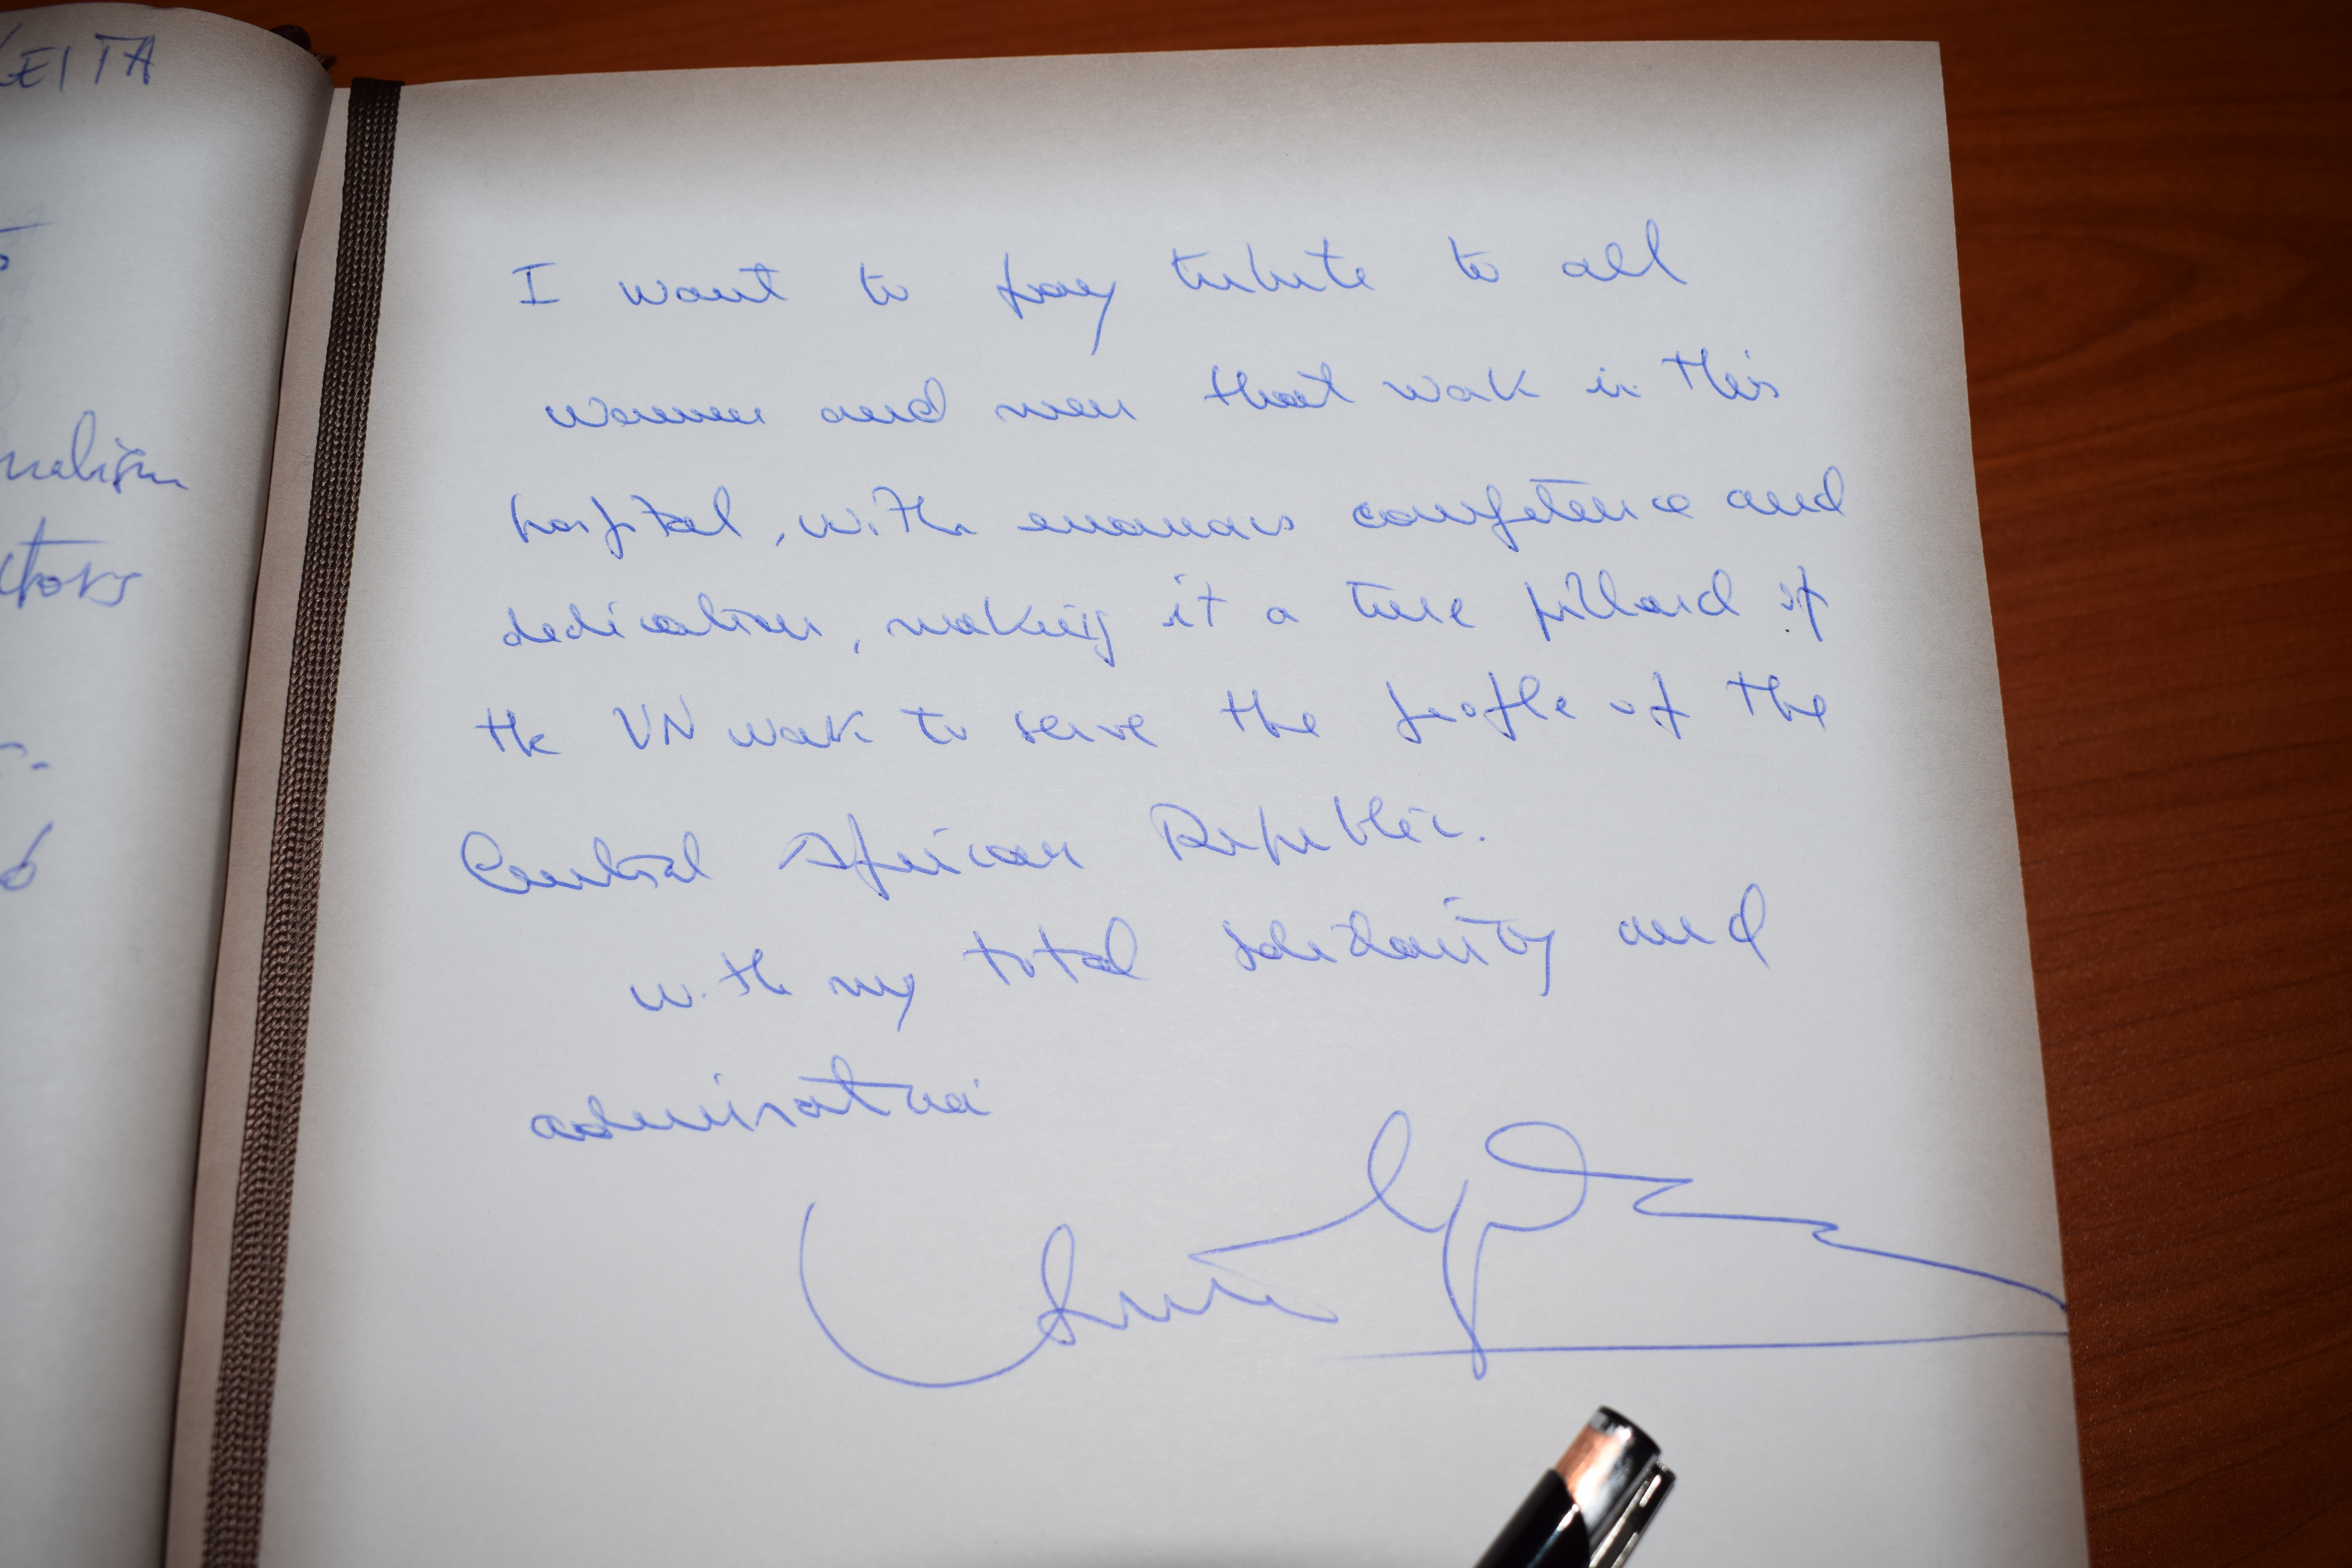 KEITA
nalism
ctors
I want to pay tribute to all
women and men that work in this
hospital, with enormous competence and
dedication, making it a true pillard of
the UN work to serve the people of the
Central African Republic.
with my total solidarity and
admiration